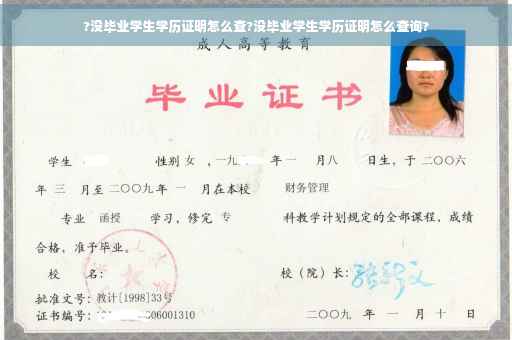 ?没毕业学生学历证明怎么查?没毕业学生学历证明怎么查询?
成人高等教育
毕业证书
学生 性别 女 ，一九 年 一 月八 日生，于 二〇〇六
年 三 月至 二〇〇九 年 一 月在本校 财务管理
专业 函授 学习，修完 专 科教学计划规定的全部课程，成绩
合格，准予毕业。
校 名： 校（院）长：
批准文号：教计[1998]33号
证书编号： 06001310 二〇〇九 年 一 月 十 日